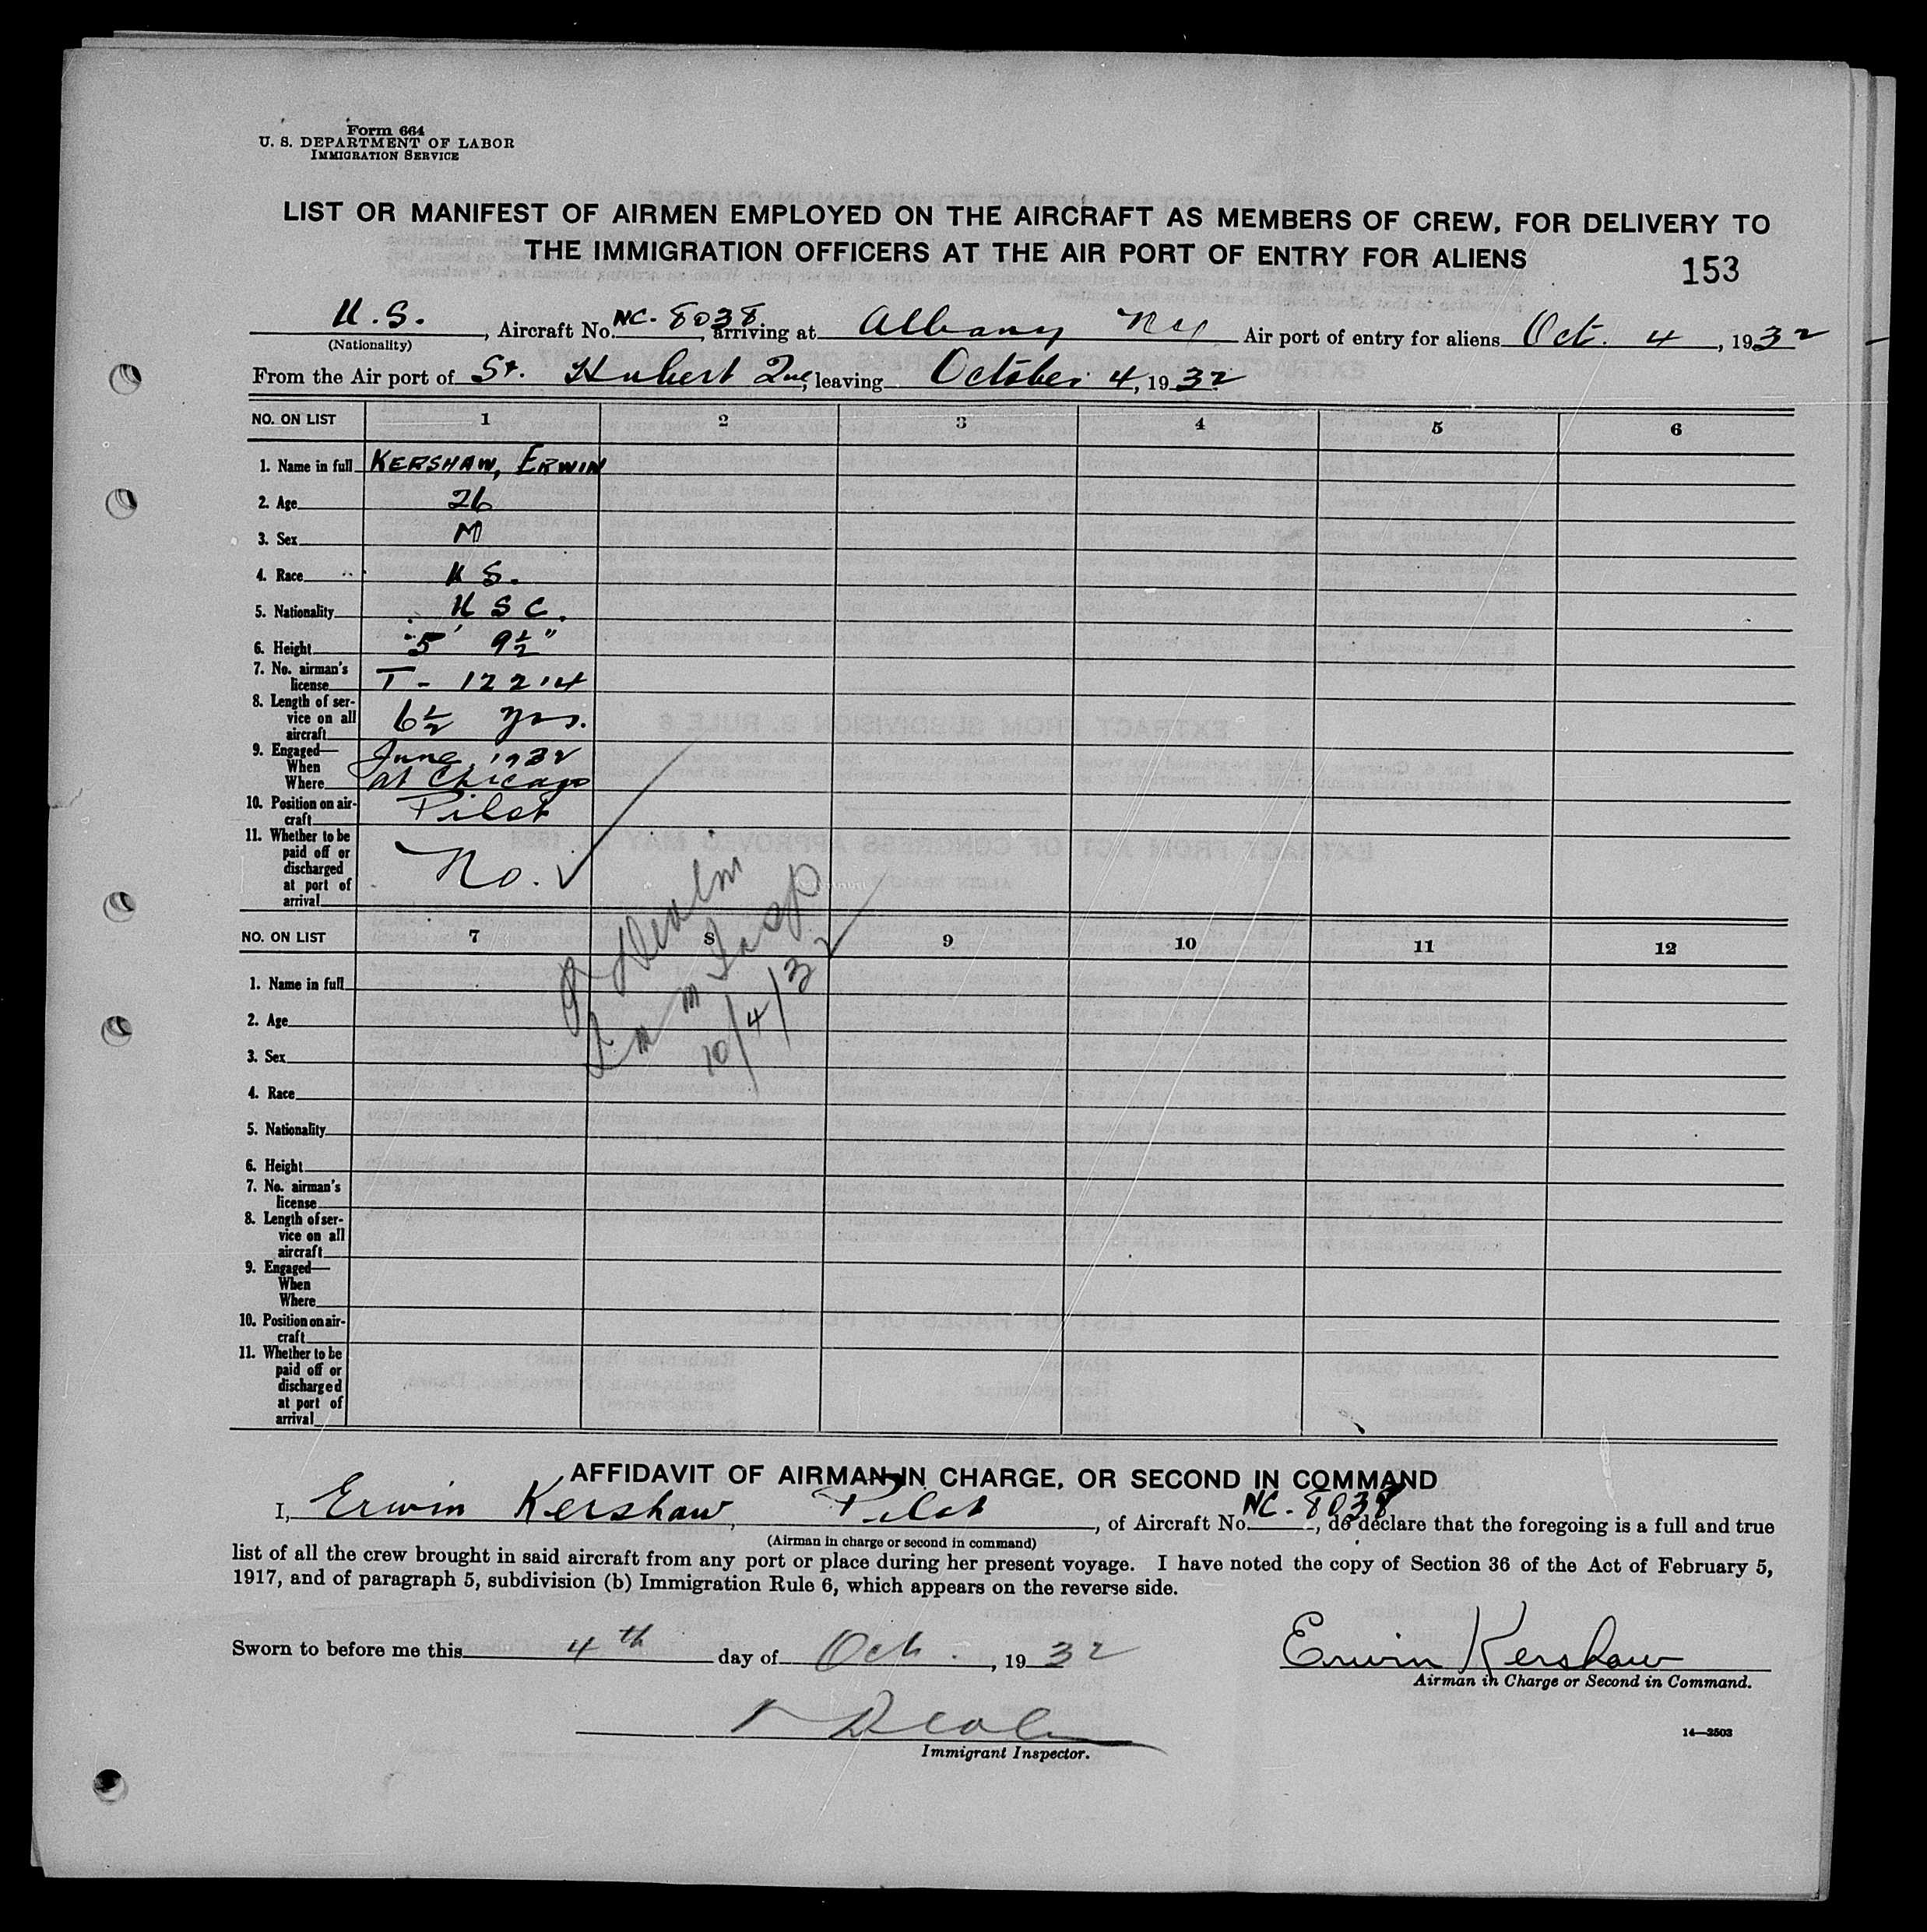 Form 664
U. S. DEPARTMENT OF LABOR
IMMIGRATION SERVICE
LIST OR MANIFEST OF AIRMEN EMPLOYED ON THE AIRCRAFT AS MEMBERS OF CREW, FOR DELIVERY TO
THE IMMIGRATION OFFICERS AT THE AIR PORT OF ENTRY FOR ALIENS
153
U.S., Aircraft No. NC-8038, arriving at Albany NY, Air port of entry for aliens Oct. 4, 1932
(Nationality)
From the Air port of St. Hubert Que, leaving October 4, 1932
NO. ON LIST 1 2 3 4 5 6
1. Name in full KERSHAW, ERWIN
2. Age 26
3. Sex M
4. Race U S.
5. Nationality U S C.
6. Height 5' 9½"
7. No. airman's
license T- 12214
8. Length of ser-
vice on all
aircraft 6½ yrs.
9. Engaged—
When June, 1932
Where at Chicago
10. Position on air-
craft Pilot
11. Whether to be
paid off or
discharged
at port of
arrival No.
Imm Insp
10/4/32
NO. ON LIST 7 8 9 10 11 12
1. Name in full
2. Age
3. Sex
4. Race
5. Nationality
6. Height
7. No. airman's
license
8. Length of ser-
vice on all
aircraft
9. Engaged—
When
Where
10. Position on air-
craft
11. Whether to be
paid off or
discharged
at port of
arrival
AFFIDAVIT OF AIRMAN IN CHARGE, OR SECOND IN COMMAND
I, Erwin Kershaw, Pilot, of Aircraft No. NC-8038, do declare that the foregoing is a full and true
(Airman in charge or second in command)
list of all the crew brought in said aircraft from any port or place during her present voyage. I have noted the copy of Section 36 of the Act of February 5,
1917, and of paragraph 5, subdivision (b) Immigration Rule 6, which appears on the reverse side.
Sworn to before me this 4th day of Oct., 1932
Erwin Kershaw
Airman in Charge or Second in Command.
Immigrant Inspector.
14—3503